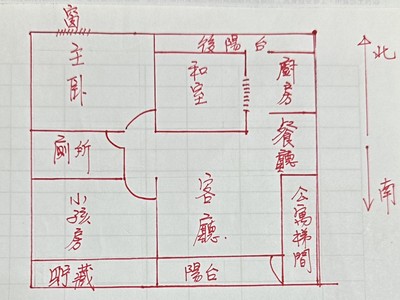 窗
後陽台
主臥
和室
廚房
北
廁所
餐廳
小孩房
客廳
公寓梯間
南
貯藏
陽台